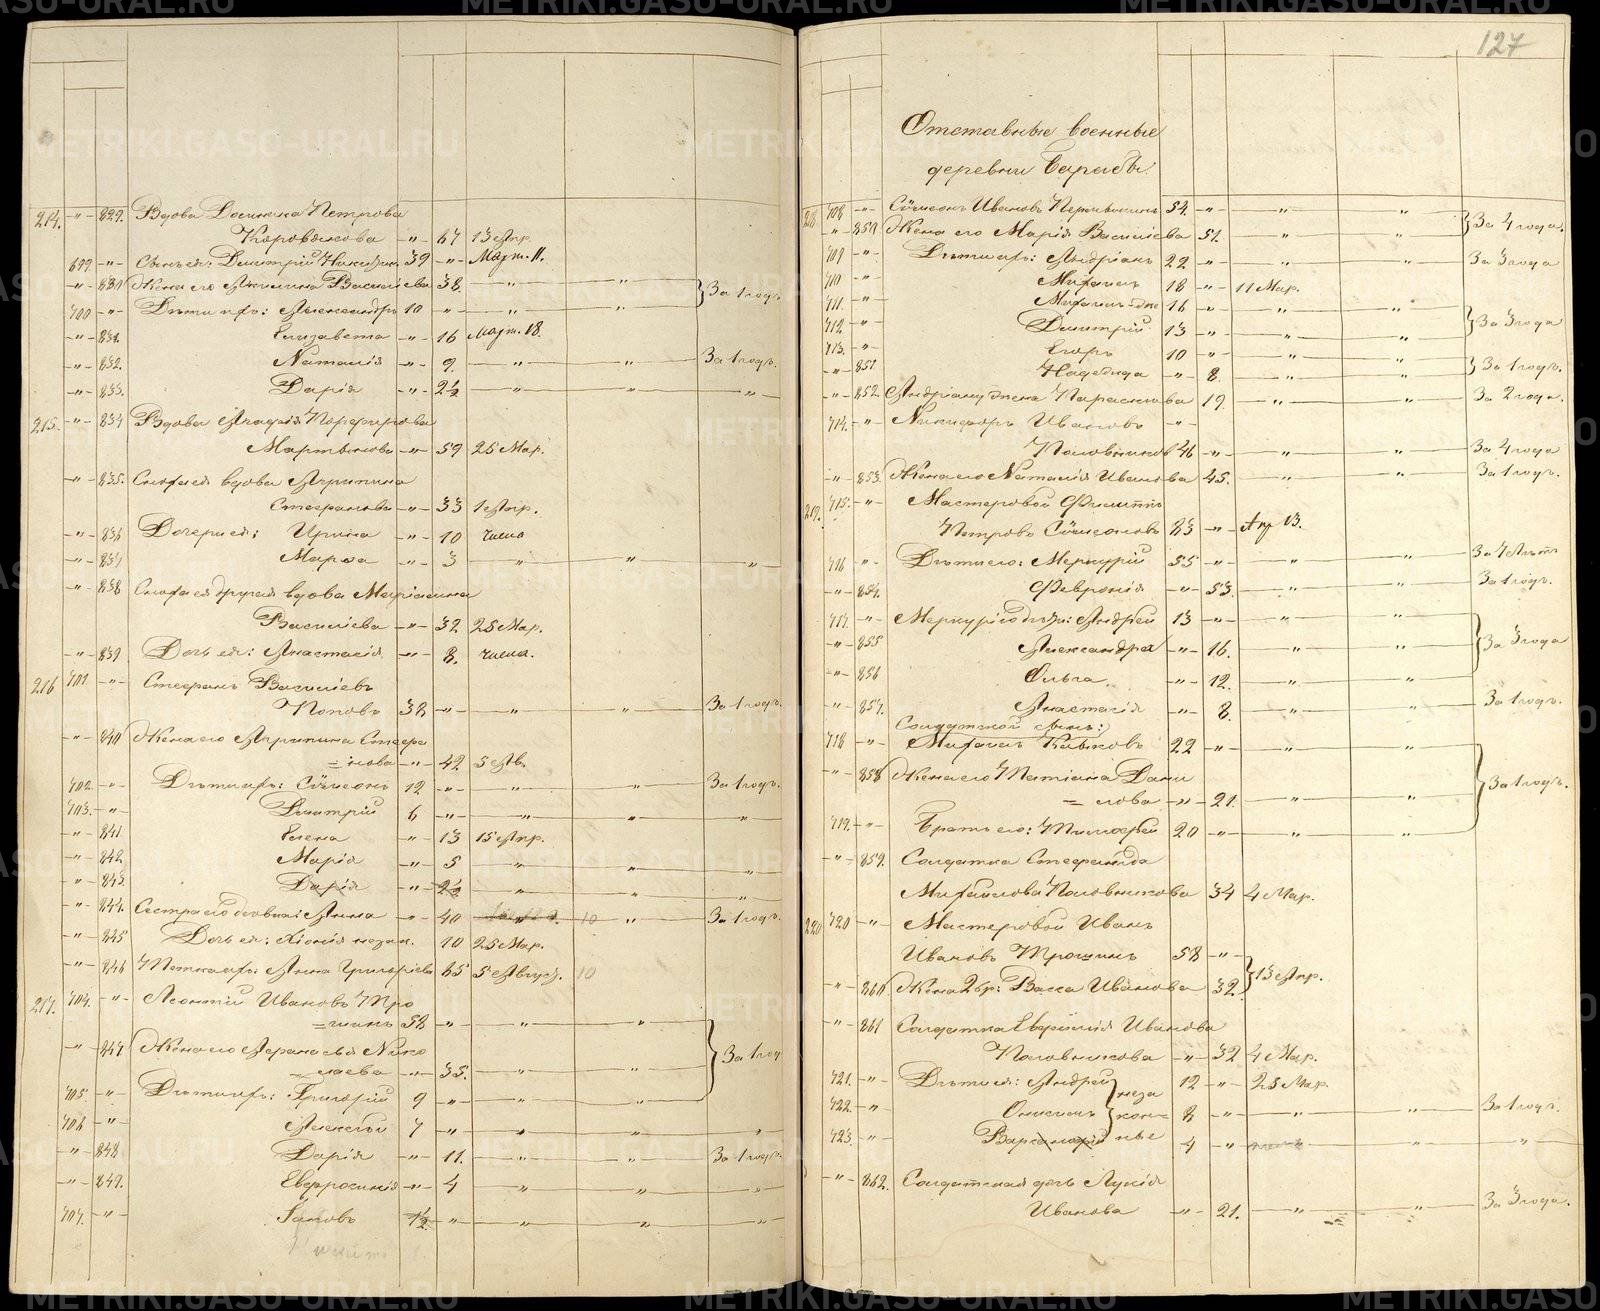 127
214. -"- 829. Вдова Домника Петрова
Коровякова -"- 67 13 Апр.
699. -"- Сынъ ея: Димитрій Никитин 39 -"- Март. 11.
-"- 830 Жена его Акилина Васильева 38. " " } За 1 годъ
700 -"- Дѣти ихъ: Александръ 10 -"- " "
-"- 831. Елизавета -"- 16 Март. 18.
-"- 832. Наталія -"- 9. " " За 1 годъ.
-"- 833. Дарія -"- 2½ " " "
215. -"- 834 Вдова Агафія Порфирова
Мартынова -"- 59 25 Мар.
-"- 835. Сноха ея вдова Агрипина
Стефанова -"- 33 1 Апр.
-"- 836 Дочери ея: Ирина -"- 10 числа
-"- 837 Марѳа -"- 3 " " "
-"- 838 Сноха ея другая вдова Маріамна
Васильева -"- 32 25 Мар.
-"- 839 Дочь ея: Анастасія -"- 8. числа.
216 701 -"- Стефанъ Васильевъ
Поповъ 38 -"- " " За 1 годъ.
-"- 840 Жена его Агрипина Стефа
=нова -"- 42 5 Ав.
702. -"- Дѣти ихъ: Сѵмеонъ 12 -"- " " За 1 годъ.
703. -"- Димитрій 6 -"- " " "
-"- 841 Елена -"- 13 15 Апр.
-"- 842 Марія -"- 5 " " "
-"- 843. Дарія -"- 2½ " " "
-"- 844. Сестра его вдова: Анна -"- 40 " 10 " За 1 годъ.
-"- 845 Дочь ея: Хіонія незак. 10 25 Мар.
-"- 846 Тетка ихъ: Анна Григорьева 65 5 Август. 10
217. 704. -"- Леонтій Ивановъ Тро
=шинъ 58 -"- " "
-"- 847 Жена его Аѳанасья Нико
=лаева -"- 35. " " } За 1 год
705. -"- Дѣти ихъ: Григорій 9 -"- " "
706 -"- Алексѣй 7 -"- " " "
-"- 848 Дарія -"- 11. " " За 1 годъ.
-"- 849. Евфросинія -"- 4 " " "
707. -"- Іаковъ 1½ -"- " " "
Отставные военные
деревни Барабы.
218 708 -"- Сѵмеонъ Ивановъ 54. -"- " " } За 4 года.
-"- 850 Жена его Марія Васильева 51. " "
709 -"- Дѣти ихъ: Андріанъ 22 -"- " " За 3 года
710 -"- Михаилъ 18 -"- 11 Мар.
711. -"- Михаилъ же 16 -"- " "
712. -"- Димитрій 13 -"- " " } За 3 года
713. -"- Егоръ 10 -"- " "
-"- 851 Надежда -"- 8. " " } За 1 годъ.
-"- 852. Андріану жена Параскева 19. " " За 2 года.
714. -"- Никифоръ Ивановъ -"-
Половниковъ 46 -"- " " За 4 года
-"- 853. Жена его Наталія Иванова 45. " " За 1 годъ.
219. 715. -"- Мастеровой Филиппъ
Петровъ Сѵмеоновъ 83 -"- Апр 13.
716 -"- Дѣти его: Меркурій 55 -"- " " За 7 лѣтъ
-"- 854. Февронія -"- 53. " " За 1 годъ.
717. -"- Меркурія дѣти: Андрей 13 -"- " "
-"- 855 Александра -"- 16. " " } За 3 года
-"- 856 Ольга. -"- 12. " "
-"- 857. Анастасія -"- 8. " " За 1 годъ.
Солдатской сынъ:
718 -"- Михаилъ Клыковъ 22 -"- " "
-"- 858 Жена его Татіана Дани
= лова -"- 21. " " } За 1 годъ.
719. -"- Братъ его: Тимоѳей 20 -"- " "
-"- 859. Солдатка Стефанида
Михайлова Половникова 34 4 Мар.
220 720 -"- Мастеровой Иванъ
Ивановъ Трошинъ 58 -"- } 13 Апр.
-"- 860 Жена 2 бр: Васса Иванова 32.
-"- 861 Солдатка Евфимія Иванова
Половникова -"- 32 4 Мар.
721. -"- Дѣти ея: Андрей } неза 12 -"- 25 Мар.
722. -"- Онисимъ } кон= 8 -"- " " За 1 годъ.
723. -"- Варсонофій ные 4 -"- " "
-"- 862. Солдатская дочь Лукія
Иванова -"- 21. " " За 3 года.
METRIKI.GASO-URAL.RU